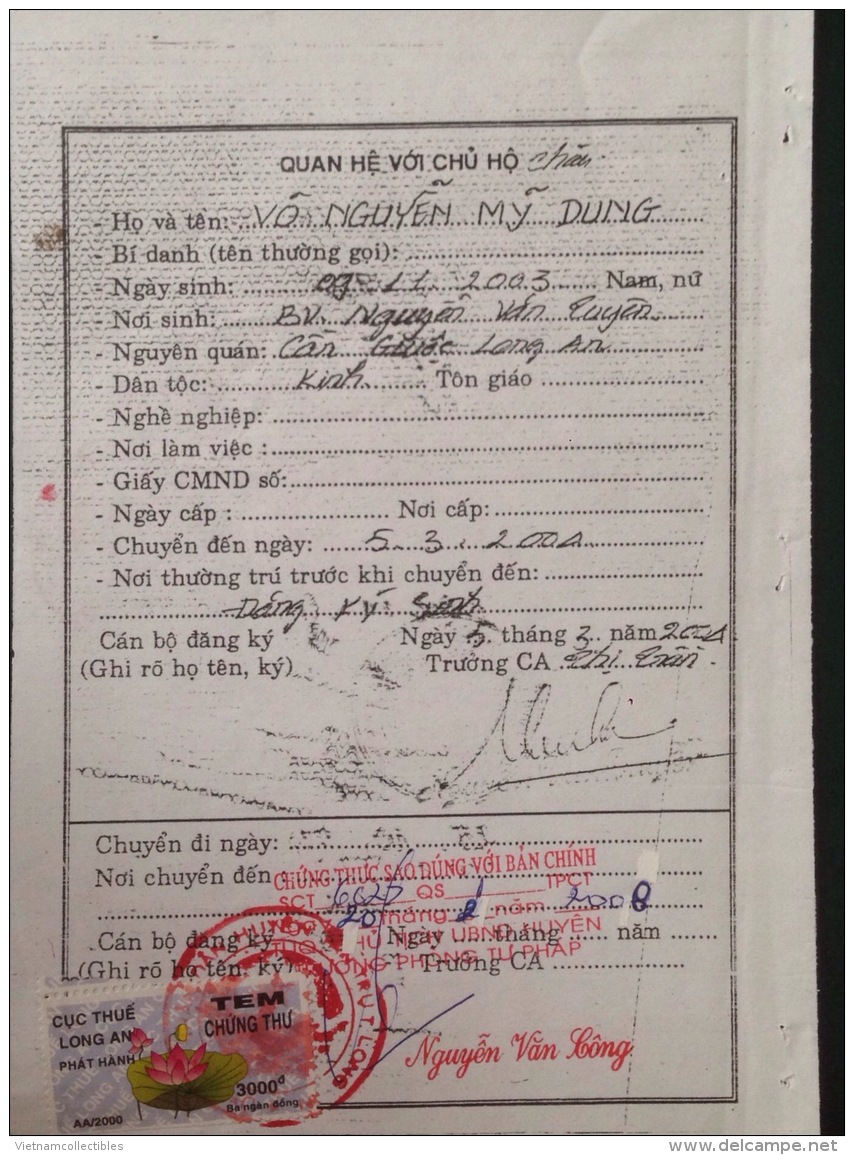 QUAN HỆ VỚI CHỦ HỘ cháu
- Họ và tên: VÕ NGUYỄN MỸ DUNG
- Bí danh (tên thường gọi):
- Ngày sinh: 09 - 11 . 2003 Nam, nữ
- Nơi sinh: BV. Nguyễn Văn
- Nguyên quán: Cần Giuộc Long An
- Dân tộc: Kinh Tôn giáo
- Nghề nghiệp:
- Nơi làm việc :
- Giấy CMND số:
- Ngày cấp : Nơi cấp:
- Chuyển đến ngày: 5 . 3 . 2004
- Nơi thường trú trước khi chuyển đến:
Đăng Ký Sinh
Cán bộ đăng ký Ngày 5 tháng 3 năm 2004
(Ghi rõ họ tên, ký) Trưởng CA Thị Trấn
Chuyển đi ngày:
Nơi chuyển đến :
CHỨNG THỰC SAO ĐÚNG VỚI BẢN CHÍNH
SCT QS TPCT
20 tháng 2 năm 2008
Cán bộ đăng ký Ngày tháng năm
CHỦ TỊCH UBND HUYỆN
PHÒNG TƯ PHÁP
(Ghi rõ họ tên, ký) Trưởng CA
TEM
CHỨNG THƯ
CỤC THUẾ
LONG AN
PHÁT HÀNH
3000đ
Ba ngàn đồng
AA/2000
Nguyễn Văn Công
Vietnamcollectibles
www.delcampe.net